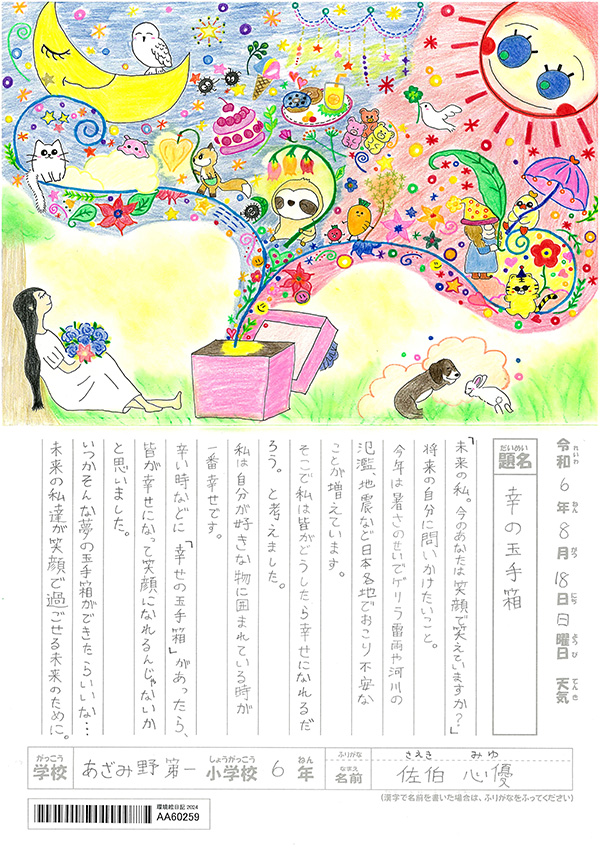 令和6年8月18日日曜日 天気
れいわ ねん がつ にち ようび てんき
だいめい
題名
幸の玉手箱
「未来の私。今のあなたは笑顔で笑えていますか?」
将来の自分に問いかけたいこと。
今年は暑さのせいでゲリラ雷雨や河川の
氾濫、地震など日本各地でおこり不安な
ことが増えています。
そこで私は皆がどうしたら幸せになれるだ
ろう。と考えました。
私は自分が好きな物に囲まれている時が
一番幸せです。
辛い時などに「幸せの玉手箱」があったら、
皆が幸せになって笑顔になれるんじゃないか
と思いました。
いつかそんな夢の玉手箱ができたらいいな…
未来の私達が笑顔で過ごせる未来のために。
がっこう しょうがっこう ねん
学校 あざみ野第一小学校 6年
ふりがな さえき みゆ
なまえ
名前 佐伯 心優
(漢字で名前を書いた場合は、ふりがなをふってください)
環境絵日記2024
AA60259